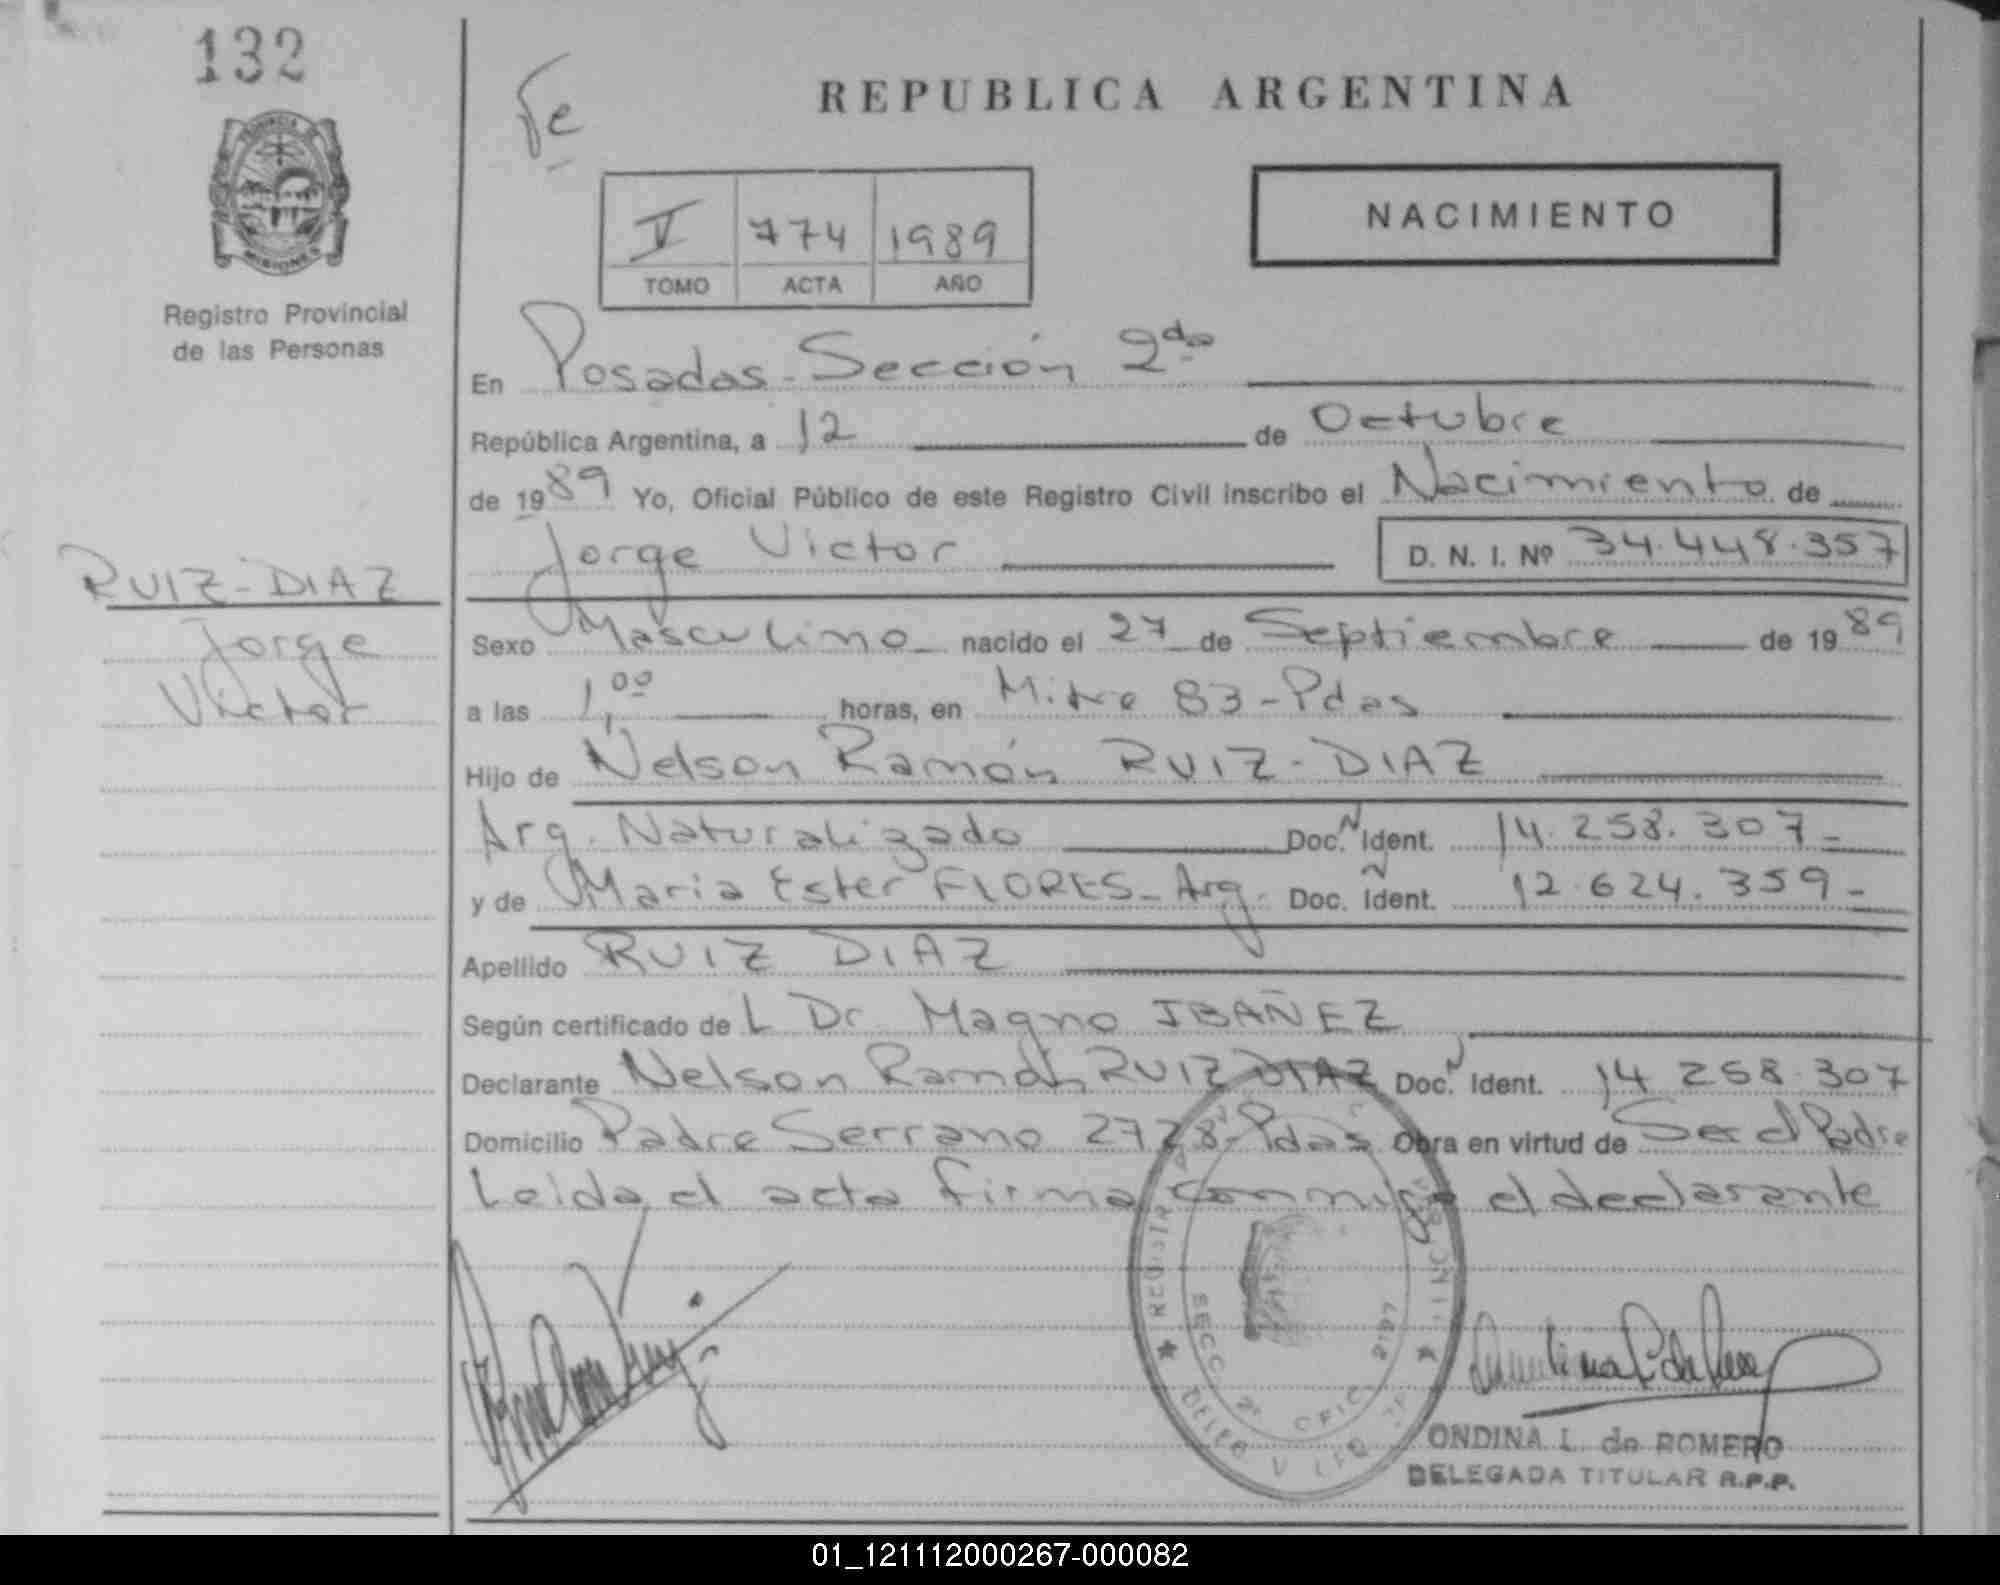 132
PROVINCIA DE
MISIONES
Registro Provincial
de las Personas
RUIZ-DIAZ
Jorge
Victor
REPUBLICA ARGENTINA
V 774 1989
TOMO ACTA AÑO
NACIMIENTO
En Posadas - Sección 2da
República Argentina, a 12 de Octubre
de 1989 Yo, Oficial Público de este Registro Civil inscribo el Nacimiento de
Jorge Victor D. N. I. Nº 34.448.357
Sexo Masculino nacido el 27 de Septiembre de 1989
a las 1,00 horas, en Mitre 83 - Pdas
Hijo de Nelson Ramón RUIZ-DIAZ
Arg. Naturalizado Doc. N Ident. 14.258.307-
y de Maria Ester FLORES - Arg. Doc. N Ident. 12.624.359-
Apellido RUIZ DIAZ
Según certificado de L Dr. Magno IBAÑEZ
Declarante Nelson Ramón RUIZ DIAZ Doc. N Ident. 14 258.307
Domicilio Padre Serrano 2728-Pdas Obra en virtud de Ser el Padre
Leida el acta firma conmigo el declarante
SECC. 2ª OFIC.
ONDINA L. de ROMERO
DELEGADA TITULAR R.P.P.
01_121112000267-000082